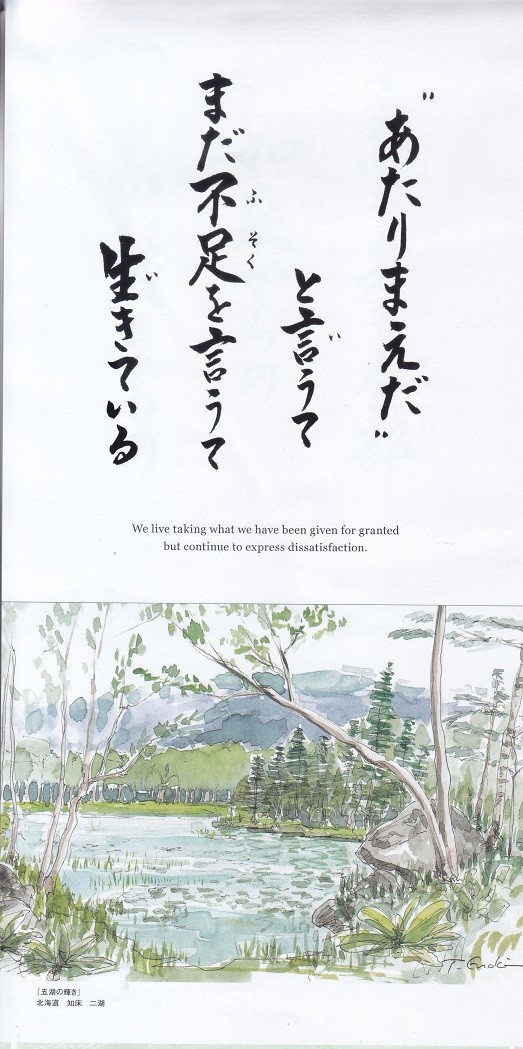 "あたりまえだ"
と言うて
まだ不足を言うて
生きている
い
ふそく
い
We live taking what we have been given for granted
but continue to express dissatisfaction.
「五湖の輝き」
北海道 知床 二湖